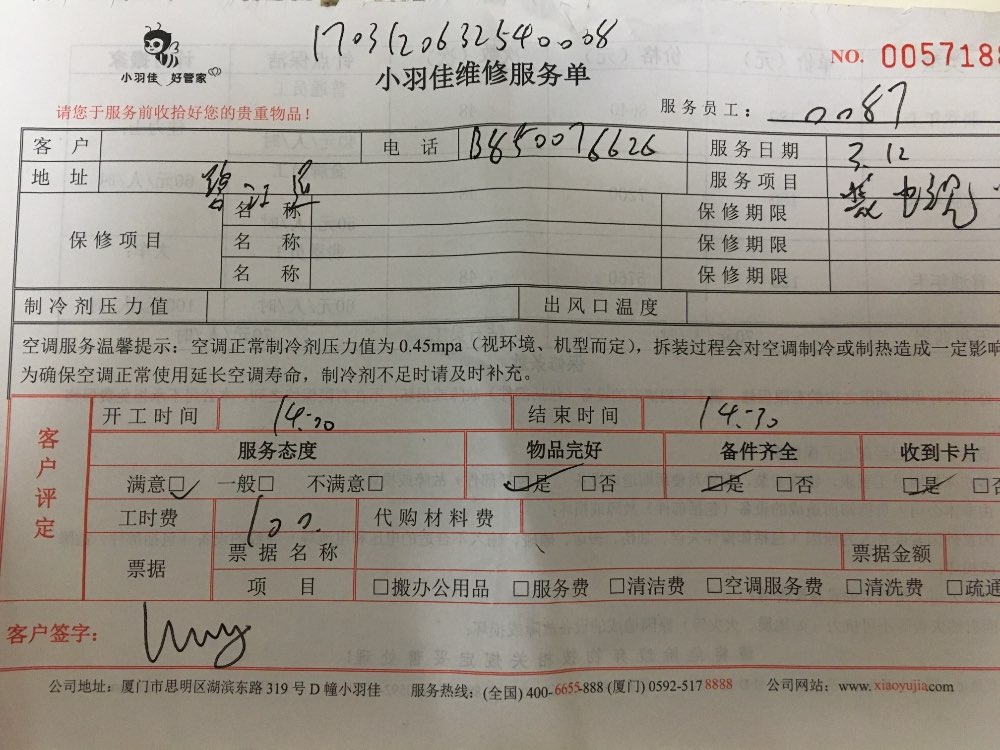 1703120632540008
小羽佳 好管家
小羽佳维修服务单
NO. 0057188
请您于服务前收拾好您的贵重物品！
服务员工： 0087
客户 电话 13850076626 服务日期 3.12
地址 服务项目 装电视
保修项目 名称 保修期限
名称 保修期限
名称 保修期限
制冷剂压力值 出风口温度
空调服务温馨提示：空调正常制冷剂压力值为 0.45mpa（视环境、机型而定），拆装过程会对空调制冷或制热造成一定影响
为确保空调正常使用延长空调寿命，制冷剂不足时请及时补充。
客户评定
开工时间 14:20 结束时间 14:30
服务态度 物品完好 备件齐全 收到卡片
满意☑ 一般□ 不满意□ ☑是 □否 ☑是 □否 ☑是 □否
工时费 100. 代购材料费
票据 票据名称 票据金额
项目 □搬办公用品 □服务费 □清洁费 □空调服务费 □清洗费 □疏通
客户签字：
公司地址：厦门市思明区湖滨东路 319 号 D 幢小羽佳 服务热线：(全国) 400-6655-888 (厦门) 0592-517 8888 公司网站：www.xiaoyujia.com